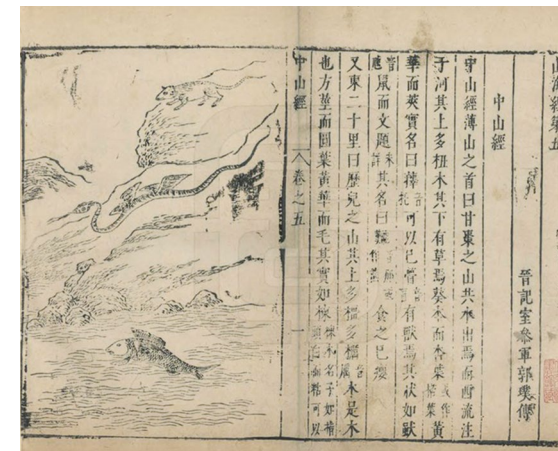 山海經第五
晉記室參軍郭璞傳
中山經
中山經薄山之首曰甘棗之山共水出焉而西流注
于河其上多杻木其下有草焉葵本而杏葉或作楛葉黃
華而莢實名曰籜音托可以已瞢音盲有獸焉其狀如
鼠而文題其名曰食之已癭
又東二十里曰歷兒之山其上多橿多櫔音厲木是木
也方莖而圓葉黃華而毛其實如楝楝木名子如指頭白而粘可以
中山經 卷之五 一